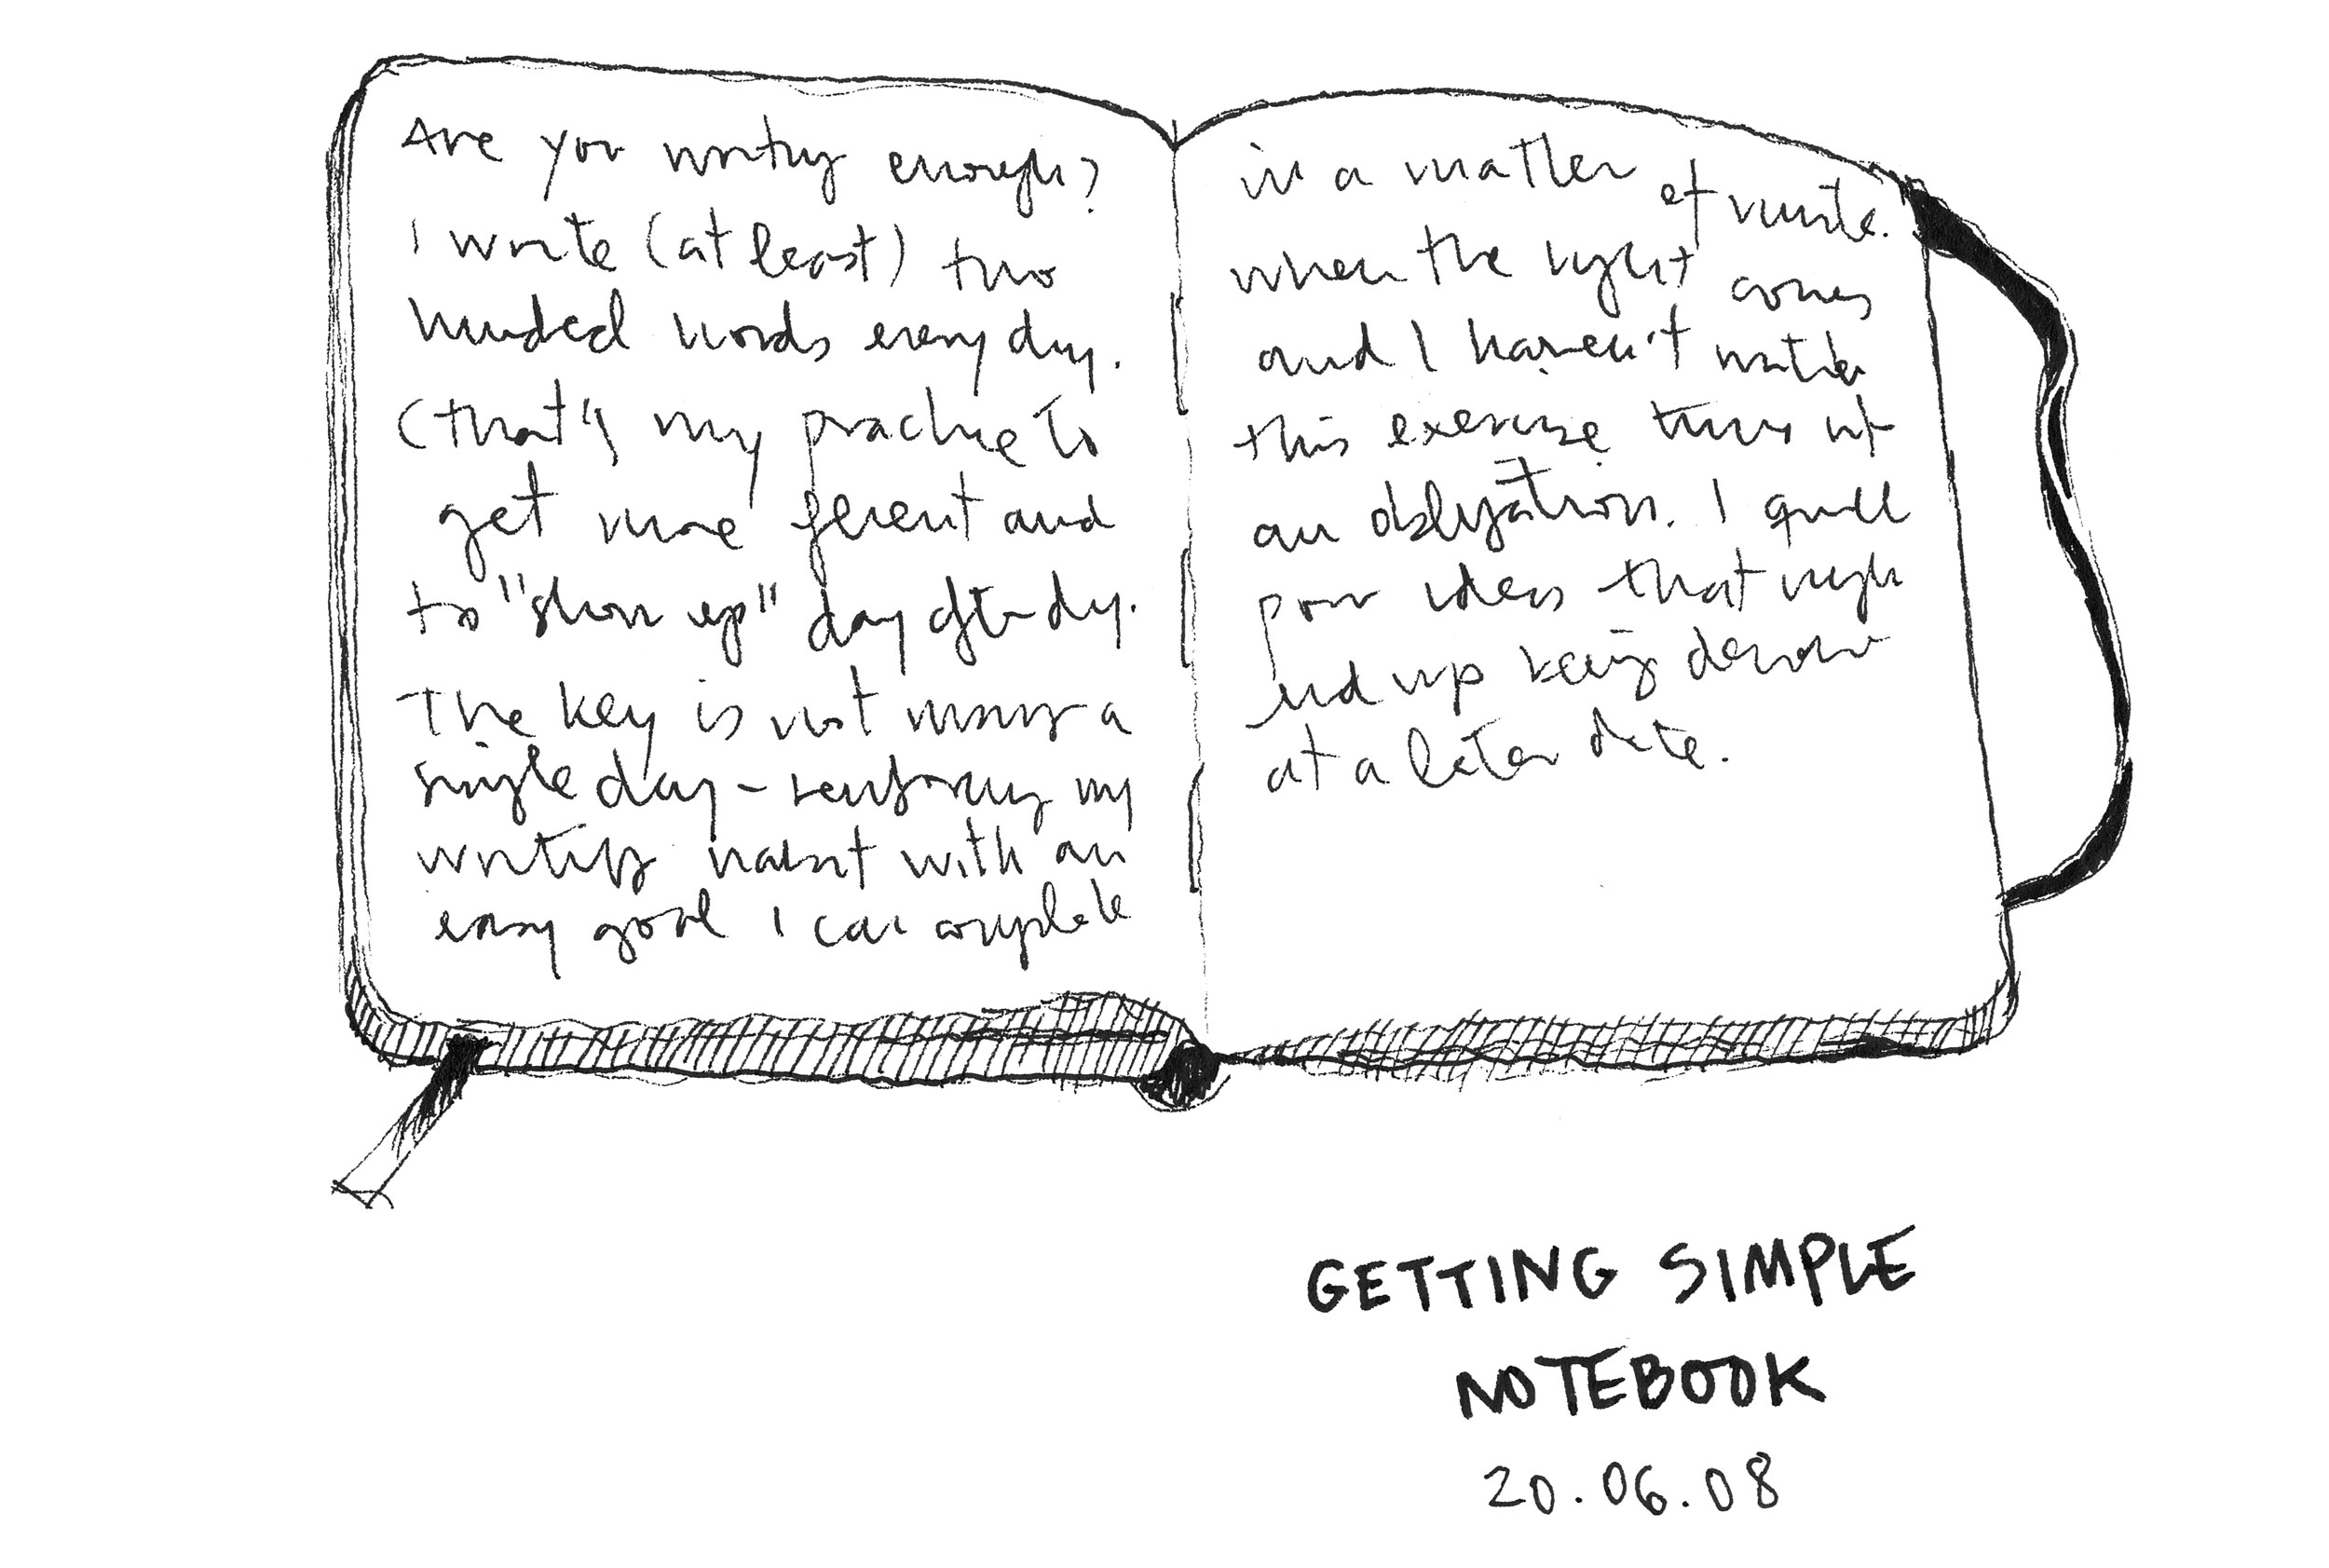 Are you writing enough?
I write (at least) two
hundred words every day.
(that's my practice to
get more fluent and
to "show up" day after day.
The key is not missing a
single day - reinforcing my
writing habit with an
easy goal I can complete
in a matter of minute.
when the night comes
and I haven't written
this exercise turns into
an obligation. I
poor ideas that might
end up being
at a later date.
GETTING SIMPLE
NOTEBOOK
20.06.08